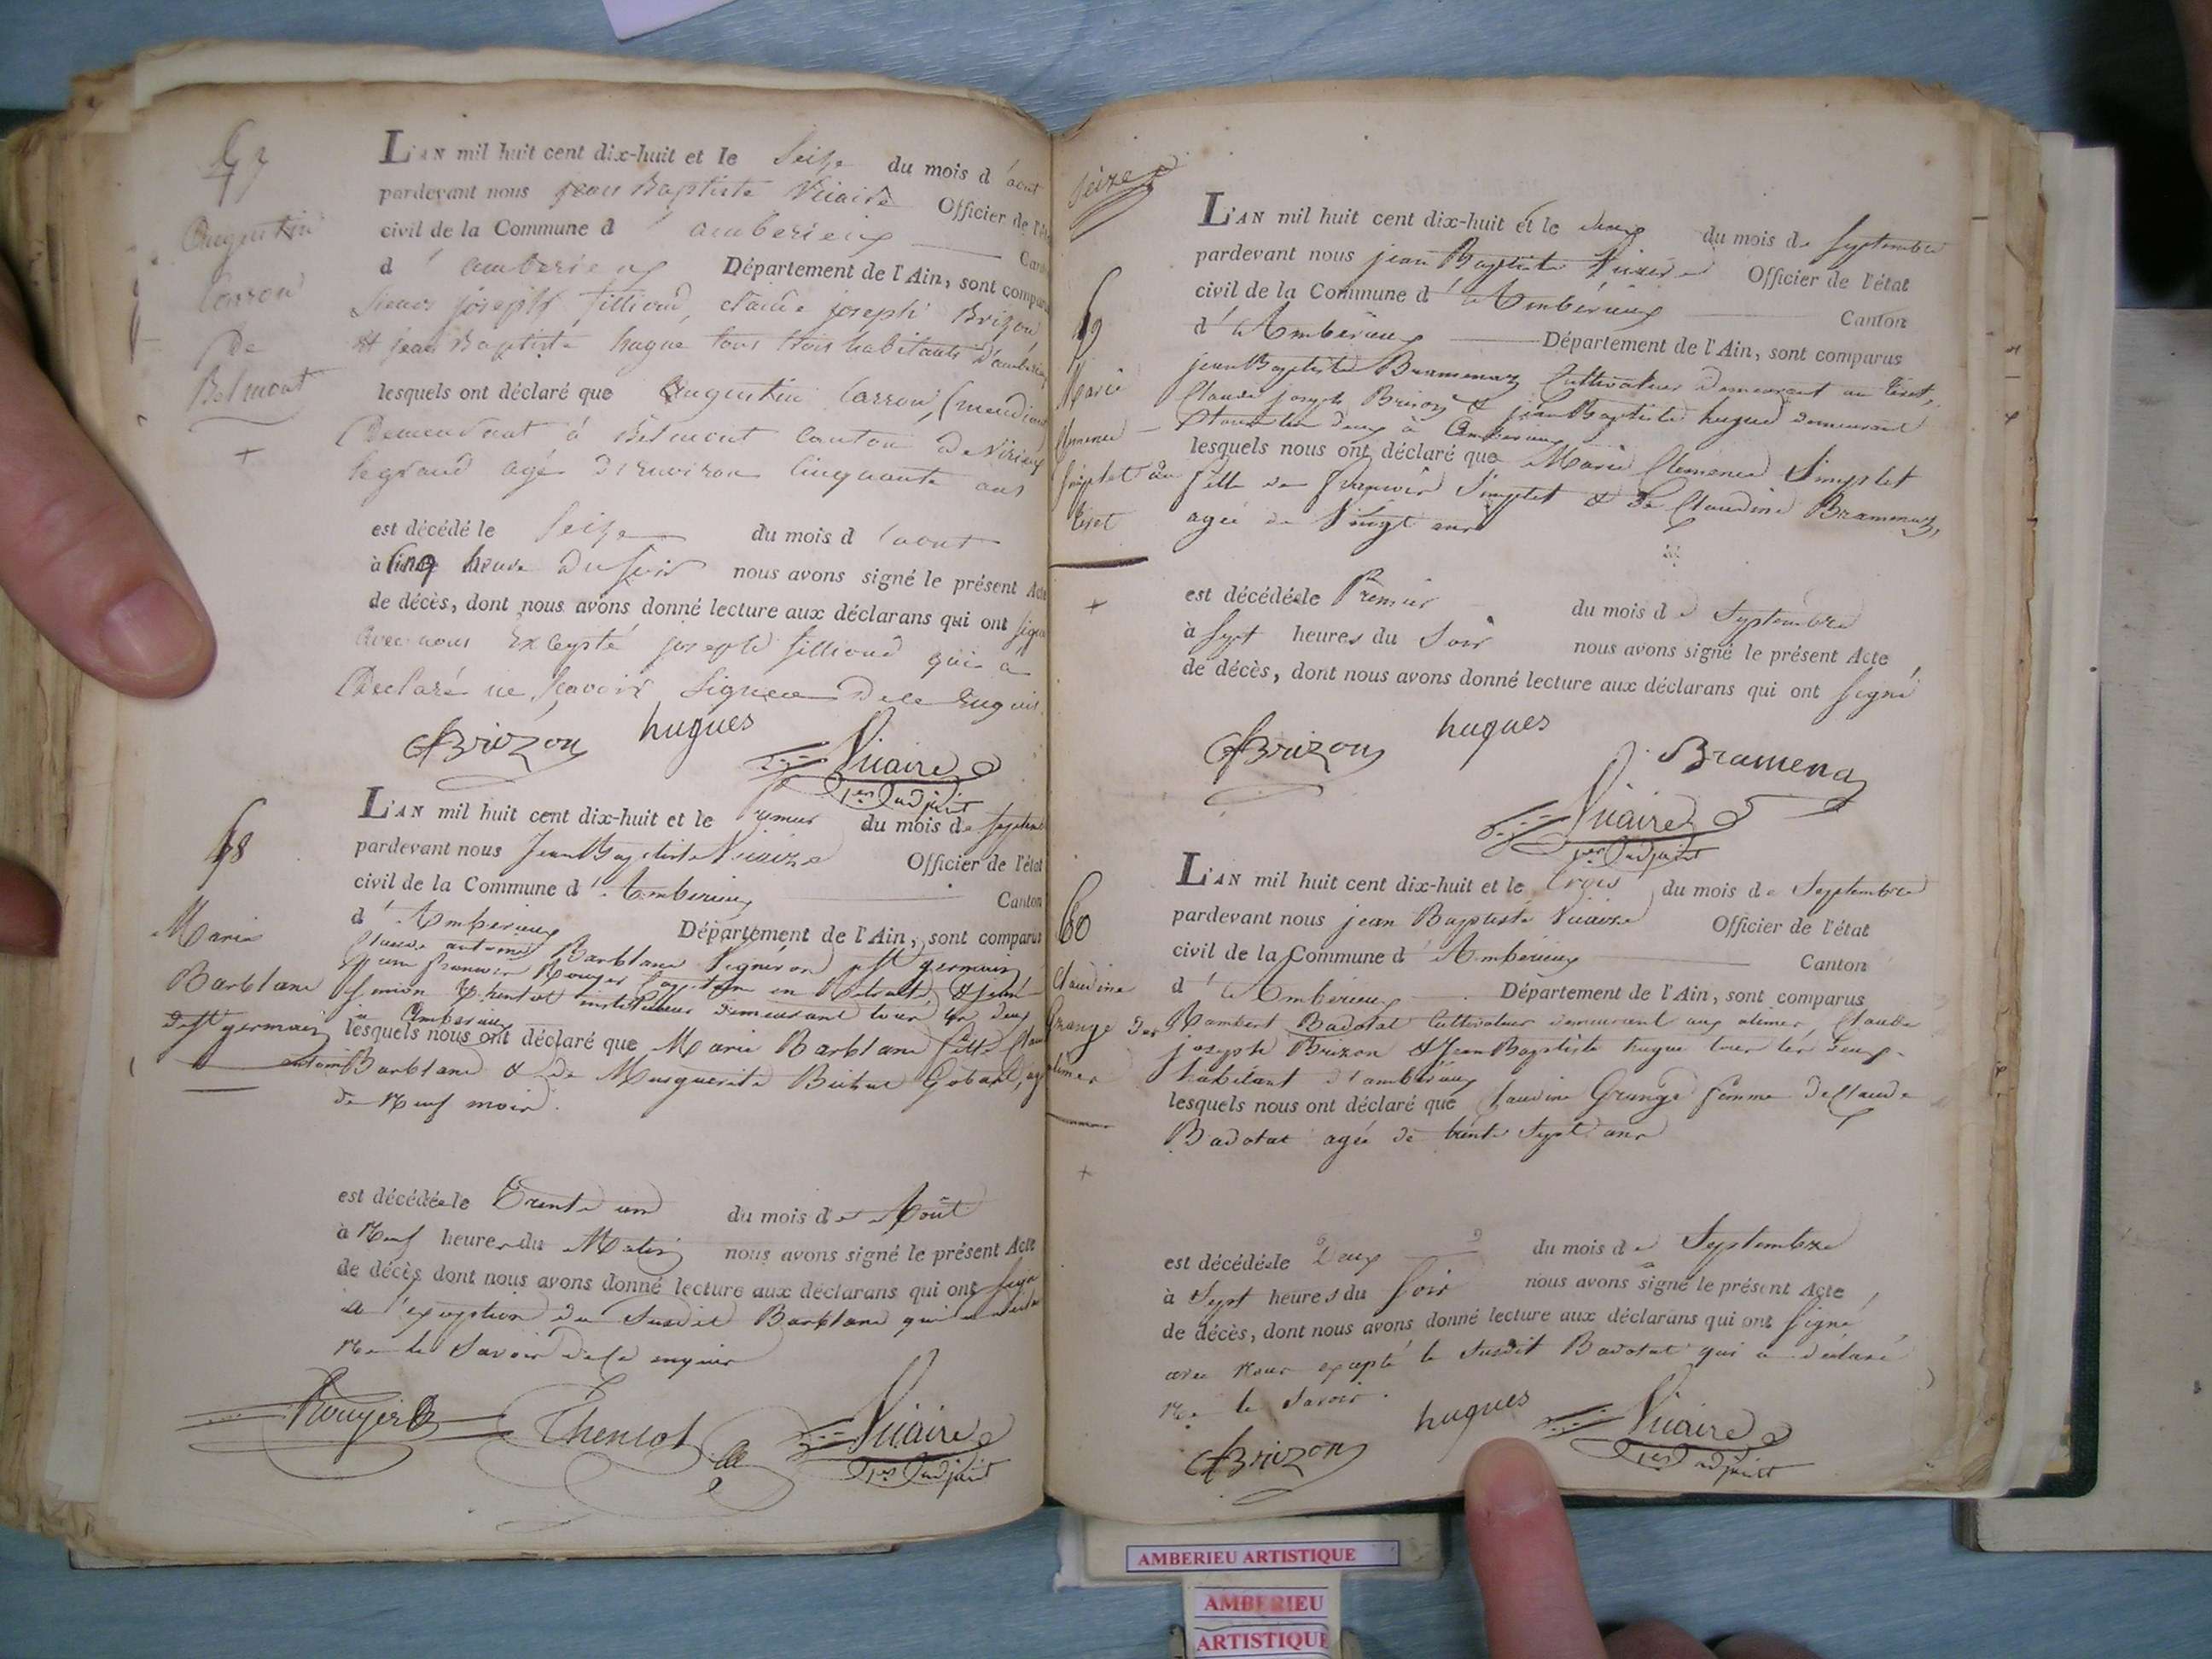 57
Augustin
Carron
De
Belmont
+
L'AN mil huit cent dix-huit et le Seize du mois d'aout
pardevant nous jean Baptiste Vicaire Officier de l'état
civil de la Commune d'amberieux Canton
d'amberieux Département de l'Ain, sont comparus
Sieurs joseph filliond, claude joseph Brizon
et jean Baptiste hugue tous trois habitants d'amberieux
lesquels ont déclaré que Augustin Carron, (mendiant
Demeurant à Belmont Canton de Virieux
legrand agé d'environ Cinquante ans
est décédé le Seize du mois d'aout
à Cinq heure du soir nous avons signé le présent Acte
de décès, dont nous avons donné lecture aux déclarans qui ont signé
avec nous Excepté joseph filliond qui a
Declaré ne scavoir signer De ce Enquis.
CJBrizon hugues Vicaire
1er adjoint
58
Marie
Barblanc
de St germain
L'AN mil huit cent dix-huit et le Premier du mois de Septembre
pardevant nous Jean Baptiste Vicaire Officier de l'état
civil de la Commune d'Amberieux Canton
d'Amberieux Département de l'Ain, sont comparus
Claude antoine Barblanc Vigneron à St germain
Rouger Capitaine en Retraite, &
Thenlot instituteur demeurant tous les deux
à Amberieux
lesquels nous ont déclaré que Marie Barblanc fille Claude
antoine Barblanc & de Marguerite Gobart, agée
de Neuf mois.
est décédée le Trente un du mois de Août
à Neuf heures du Matin nous avons signé le présent Acte
de décès dont nous avons donné lecture aux déclarans qui ont signé
à l'exception du Susdit Barblanc qui a déclaré
Ne le Savoir de ce enquis
Rouyer Thenlot Vicaire
1er adjoint
seize
59
Marie
Clemence
Simplet du
Tiret
+
L'AN mil huit cent dix-huit et le deux du mois de Septembre
pardevant nous jean Baptiste Vicaire Officier de l'état
civil de la Commune d'Amberieux Canton
d'Amberieux Département de l'Ain, sont comparus
jean Baptiste Bramenaz Cultivateur demeurant au Tiret,
Claude joseph Brizon & jean Baptiste hugue demeurant
tous les deux à Amberieux
lesquels nous ont déclaré que Marie Clemence Simplet
fille de François Simplet & de Claudine Bramenaz,
agée de Vingt ans
est décédée le Premier du mois de Septembre
à Sept heures du Soir nous avons signé le présent Acte
de décès, dont nous avons donné lecture aux déclarans qui ont signé
CJBrizon hugues J. Bramenaz
Vicaire
1er adjoint
60
Claudine
Grange des
alimes
+
L'AN mil huit cent dix-huit et le trois du mois de Septembre
pardevant nous jean Baptiste Vicaire Officier de l'état
civil de la Commune d'Amberieux Canton
d'Amberieux Département de l'Ain, sont comparus
Rambert Badolat Cultivateur demeurant aux alimes, Claude
joseph Brizon & Jean Baptiste hugue tous les deux
habitant d'amberieux
lesquels nous ont déclaré que Claudine Grange femme de Claude
Badolat agée de trente Sept ans
est décédée le Deux du mois de Septembre
à Sept heures du Soir nous avons signé le présent Acte
de décès, dont nous avons donné lecture aux déclarans qui ont signé
avec Nous excepté le Susdit Badolat qui a déclaré
Ne le Savoir.
CJBrizon hugues Vicaire
1er adjoint
AMBERIEU ARTISTIQUE
AMBERIEU
ARTISTIQUE